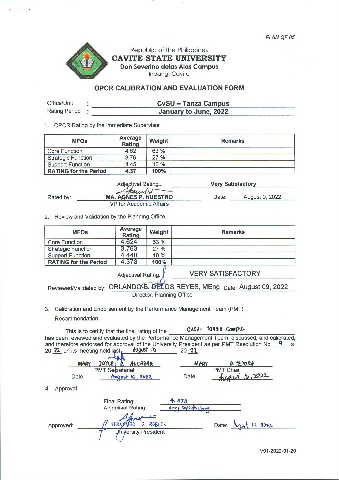 Republic of the Philippines
CAVITE STATE UNIVERSITY
Don Severino delas Alas Campus
Indang, Cavite
OPCR CALIBRATION AND EVALUATION FORM
Office/Unit : CvSU – Tanza Campus
Rating Period : January to June, 2022
1. OPCR Rating by the Immediate Supervisor
MFOs Average Rating Weight Remarks
Core Function 4.62 63 %
Strategic Function 3.76 27 %
Support Function 4.45 10 %
RATING for the Period 4.37 100%
Adjectival Rating: Very Satisfactory
Rated by: MA. AGNES P. NUESTRO Date: August 9, 2022
VP for Academic Affairs
2. Review and Validation by the Planning Office
MFOs Average Rating Weight Remarks
Core Function 4.624 63 %
Strategic Function 3.763 27 %
Support Function 4.440 10 %
RATING for the Period 4.373 100%
Adjectival Rating: VERY SATISFACTORY
Reviewed/Validated by: ORLANDO B. DELOS REYES, MEng Date: August 09, 2022
Director, Planning Office
3. Calibration and Endorsement by the Performance Management Team (PMT)
Recommendation:
This is to certify that the final rating of the CvSU- Tanza Campus
has been reviewed and evaluated by the Performance Management Team, discussed, and calibrated,
and therefore endorsed for approval of the University President as per PMT Resolution No. 9 s.
20 22 in its meeting held last August 10 20 22
PMT Secretariat PMT Chair
Date: August 10, 2022 Date: August 10, 2022
4. Approval
Final Rating: 4.373
Adjectival Rating: Very Satisfactory
Approved: Date:
University President
V01-2022-01-20